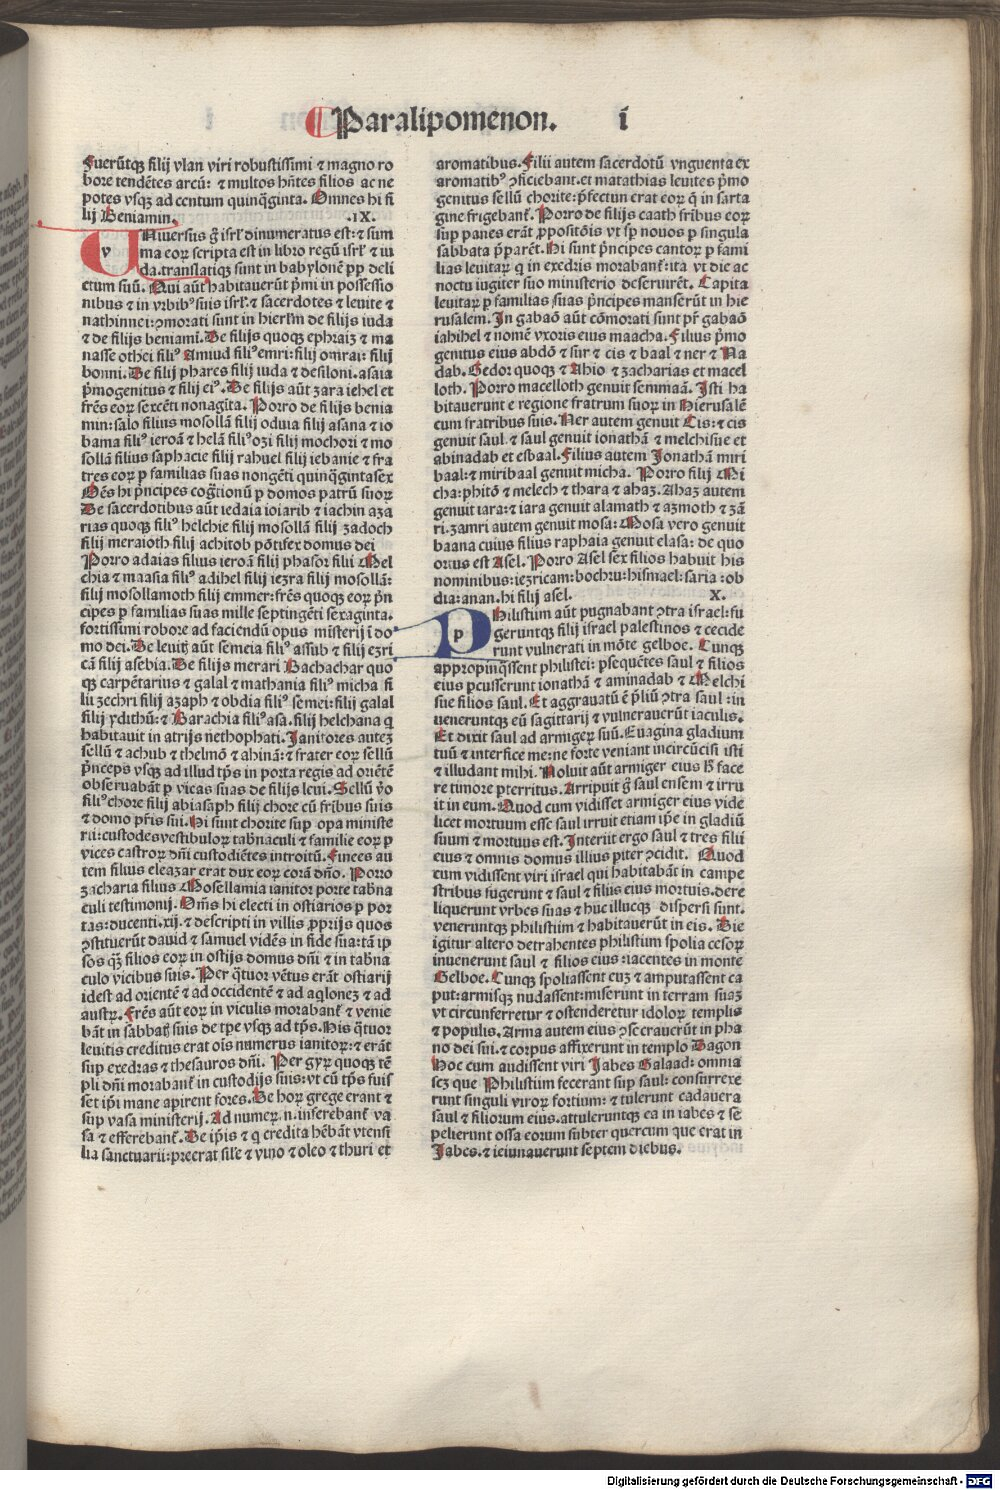 Paralipomenon. i
Fuerūtqꝫ filij vlan viri robustissimi ⁊ magno ro
bore tendētes arcū: ⁊ multos hn̄tes filios ac ne
potes vsqꝫ ad centum quinq̄ginta. Omnes hi fi
lij Beniamin. .IX.
Uniuersus ḡ isrl̄ dinumeratus est: ⁊ sum
ma eoꝝ scripta est in libro regū isrl̄ ⁊ iu
da. translatiqꝫ sunt in babylonē ꝓp deli
ctum suū. Qui aūt habitauerūt p̄mi in possessio
nibus ⁊ in vrbibꝰ suis isrl̄. ⁊ sacerdotes ⁊ leuite ⁊
nathinnei: ꝯmorati sunt in hierlm̄ de filijs iuda
⁊ de filijs beniami. De filijs quoqꝫ ephraiꝫ ⁊ ma
nasse othei filiꝰ Amiud filiꝰ emri: filij omrai: filij
bonni. De filij phares filij iuda ⁊ de siloni. asaia
p̄mogenitus ⁊ filij eiꝰ. De filijs aūt zara iehel et
fr̄es eoꝝ sexcēti nonagīta. Porro de filijs benia
min: salo filius mosollā filij oduia filij asana ⁊ io
bama filiꝰ ieroā ⁊ helā filiꝰ ozi filij mochori ⁊ mo
sollā filius saphacie filij rahuel filij iebanie ⁊ fra
tres eoꝝ ꝑ familias suas nongēti quinq̄gintasex
Oēs hi p̄ncipes cog̅tionū ꝑ domos patrū suoꝝ
De sacerdotibus aūt iedaia ioiarib ⁊ iachin aza
rias quoqꝫ filiꝰ helchie filij mosollā filij zadoch
filij meraioth filij achitob pōtifex domus dei
Porro adaias filius ieroā filij phasor filij Mel
chia ⁊ maasia filiꝰ adihel filij iezra filij mosollā:
filij mosollamoth filij emmer: fr̄es quoqꝫ eoꝝ p̄n
cipes ꝑ familias suas mille septingēti sexaginta.
fortissimi robore ad faciendū opus mīsterij ī do
mo dei. De leuitꝭ aūt semeia filiꝰ assub ⁊ filij ezri
cā filij asebia. De filijs merari Bachachar quo
qꝫ carpētarius ⁊ galal ⁊ mathania filiꝰ micha fi
lij zechri filij azaph ⁊ obdia filiꝰ semei: filij galal
filij ydithū: ⁊ Barachia filiꝰ asa. filij helchana q
habitauit in atrijs nethophati. Janitores auteꝫ
sellū ⁊ achub ⁊ thelmō ⁊ ahinā: ⁊ frater eoꝝ sellū
p̄nceps vsqꝫ ad illud tp̄s in porta regis ad oriētē
obseruabāt ꝑ vicas suas de filijs leui. Sellū v̄o
filiꝰ chore filij abiasaph filij chore cū fribus suis
⁊ domo pr̄is sui. Hi sunt chorite suꝑ opa ministe
rii: custodes vestibuloꝝ tab̄naculi ⁊ familie eoꝝ ꝑ
vices castroꝝ dn̄i custodiētes introitū. Finees au
tem filius eleazar erat dux eoꝝ corā dn̄o. Porro
zacharia filius Mosellamia ianitor porte tab̄na
culi testimonij. Om̄s hi electi in ostiarios ꝑ por
tas: ducenti. xij. ⁊ descripti in villis ꝓprijs quos
ꝯstituerūt dauid ⁊ samuel vidēs in fide sua: tā ip
sos qꝫ̄ filios eoꝝ in ostijs domus dn̄i ⁊ in tab̄na
culo vicibus suis. Per q̄tuor vētus erāt ostiarij
idest ad orientē ⁊ ad occidentē ⁊ ad aqlonez ⁊ ad
austꝝ. Fr̄es aūt eoꝝ in viculis morabant᷑ ⁊ venie
bāt in sabbatꝭ suis de tp̄e vsqꝫ ad tp̄s. His q̄tuor
leuitis creditus erat oīs numerus ianitoꝝ: ⁊ erāt
suꝑ exedras ⁊ thesauros dn̄i. Per gyꝝ quoqꝫ tē
pli dn̄i morabant᷑ in custodijs suis: vt cū tp̄s fuis
set ip̄i mane apirent fores. De hoꝝ grege erant ⁊
suꝑ vasa ministerij. Ad numeꝝ .n. inferebant᷑ va
sa ⁊ efferebant᷑. De ip̄is ⁊ q credita hēbāt vtensi
lia sanctuarii: preerat sil̄e ⁊ vino ⁊ oleo ⁊ thuri et
aromatibus. Filii autem sacerdotū vnguenta ex
aromatibꝰ ꝯficiebant. et matathias leuites p̄mo
genitus sellū chorite: p̄fectun erat eoꝝ q̄ in sarta
gine frigebant᷑. Porro de filijs caath fribus eoꝝ
suꝑ panes erāt ꝓpositōis vt sꝑ nouos ꝑ singula
sabbata p̄parēt. Hi sunt p̄ncipes cantoꝝ ꝑ fami
lias leuitaꝝ q in exedris morabant᷑: ita vt die ac
noctu iugiter suo ministerio deseruirēt. Capita
leuitaꝝ ꝑ familias suas p̄ncipes manserūt in hie
rusalem. In gabaō aūt cōmorati sunt pr̄ gabaō
iahihel ⁊ nomē vxoris eius maacha. Filius p̄mo
genitus eius abdō ⁊ sur ⁊ cis ⁊ baal ⁊ ner ⁊ Na
dab. Gedor quoqꝫ ⁊ Ahio ⁊ zacharias et macel
loth. Porro macelloth genuit semmaā. Isti ha
bitauerunt e regione fratrum suoꝝ in Hierusalē
cum fratribus suis. Ner autem genuit Cis: ⁊ cis
genuit saul. ⁊ saul genuit ionathā ⁊ melchisue et
abinadab et esbaal. Filius autem Jonathā miri
baal: ⁊ miribaal genuit micha. Porro filij Mi
cha: phitō ⁊ melech ⁊ thara ⁊ ahaz. Ahaz autem
genuit iara: ⁊ iara genuit alamath ⁊ azmoth ⁊ zā
ri. zamri autem genuit mosa: Mosa vero genuit
baana cuius filius raphaia genuit elasa: de quo
ortus est Asel. Porro Asel sex filios habuit his
nominibus: iezricam: bochru: hismael: saria: ob
dia: anan. hi filij asel. X.
Philistim aūt pugnabant ꝯtra israel: fu
geruntqꝫ filij israel palestinos ⁊ cecide
runt vulnerati in mōte gelboe. Cunqꝫ
appropinq̄ssent philistei: ꝑsequētes saul ⁊ filios
eius ꝑcusserunt ionathā ⁊ aminadab ⁊ Melchi
sue filios saul. Et aggrauatū ē p̄liū ꝯtra saul: in
ueneruntqꝫ eū sagittarij ⁊ vulnerauerūt iaculis.
Et dixit saul ad armigeꝝ suū. Euagina gladium
tuū ⁊ interfice me: ne forte veniant incircūcisi isti
⁊ illudant mihi. Noluit aūt armiger eius h̄ face
re timore ꝑterritus. Arripuit ḡ saul ensem ⁊ irru
it in eum. Quod cum vidisset armiger eius vide
licet mortuum esse saul irruit etiam ip̄e in gladiū
suum ⁊ mortuus est. Interiit ergo saul ⁊ tres filii
eius ⁊ omnis domus illius piter ꝯcidit. Quod
cum vidissent viri israel qui habitabāt in campe
stribus fugerunt ⁊ saul ⁊ filiis eius mortuis. dere
liquerunt vrbes suas ⁊ huc illucqꝫ dispersi sunt.
veneruntqꝫ philistiim ⁊ habitauerūt in eis. Die
igitur altero detrahentes philistim spolia cesoꝝ
inuenerunt saul ⁊ filios eius: iacentes in monte
Gelboe. Cunqꝫ spoliassent euꝫ ⁊ amputassent ca
put: armisqꝫ nudassent: miserunt in terram suaꝫ
vt circunferretur ⁊ ostenderetur idoloꝝ templis
⁊ populis. Arma autem eius ꝯsecrauerūt in pha
no dei sui. ⁊ corpus affixerunt in templo Dagon
Hoc cum audissent viri Jabes Galaad: omnia
scꝫ que Philistim fecerant suꝑ saul: consurrexe
runt singuli viroꝝ fortium: ⁊ tulerunt cadauera
saul ⁊ filiorum eius. attuleruntqꝫ ea in iabes ⁊ se
pelierunt ossa eorum subter quercum que erat in
Jabes. ⁊ ieiunauerunt septem diebus.
Digitalisierung gefördert durch die Deutsche Forschungsgemeinschaft - DFG